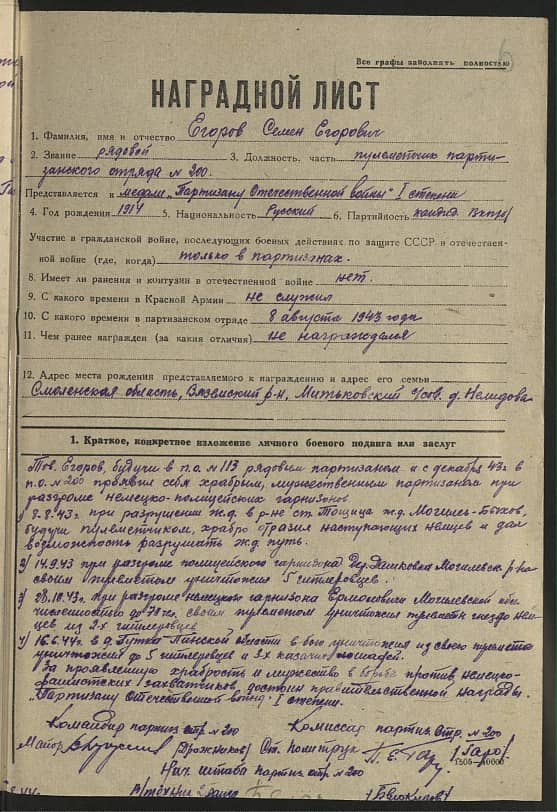 Все графы заполнять полностью
6
НАГРАДНОЙ ЛИСТ
1. Фамилия, имя и отчество Егоров Семен Егорович
2. Звание рядовой 3. Должность, часть пулеметчик парти-
занского отряда № 200.
Представляется к медали "Партизану Отечественной войны" I степени
4. Год рождения 1914 5. Национальность Русский 6. Партийность кандид. ВКП(б)
Участие в гражданской войне, последующих боевых действиях по защите СССР и отечествен-
ной войне (где, когда) только в партизанах.
8. Имеет ли ранения и контузии в отечественной войне нет.
9. С какого времени в Красной Армии не служил
10. С какого времени в партизанском отряде 8 августа 1943 года
11. Чем ранее награжден (за какия отличия) не награждался
12. Адрес места рождения представляемого к награждению и адрес его семьи
Смоленская область, Вяземский р-н, Митьковский с/сов. д. Нелидова
1. Краткое, конкретное изложение личного боевого подвига или заслуг
Тов. Егоров, будучи в п.о. № 113 рядовым партизаном и с декабря 43 г. в
п.о. № 200 проявил себя храбрым, мужественным партизаном при
разгроме немецко-полицейских гарнизонов
1) 8.8.43 г. при разрушении ж.д. в р-не ст. Тощица ж.д. Могилев-Быхов,
будучи пулеметчиком, храбро отразил наступающих немцев и дал
возможность разрушать ж.д. путь.
2) 14.9.43 при разгроме полицейского гарнизона дер. Дашковка Могилевск. р-на
своим пулеметом уничтожил 5 гитлеровцев.
3) 28.10.43 г. при разгроме немецкого гарнизона Могилевской обл.
численностью до своим пулеметом уничтожил гнездо нем-
цев из 2-х гитлеровцев
4) 16.6.44 г. в д. Пинской области в бою уничтожил из своего пулемета
уничтожил до 5 гитлеровцев и 3х лошадей.
За проявленную храбрость и мужество в борьбе против немецко-
фашистских захватчиков, достоин правительственной награды
"Партизану Отечественной войны" I степени.
Командир партиз. отр. № 200 Комиссар партиз. отр. № 200
Майор /Дрожников/ Ст. политрук
Нач. штаба партиз. отр. № 200